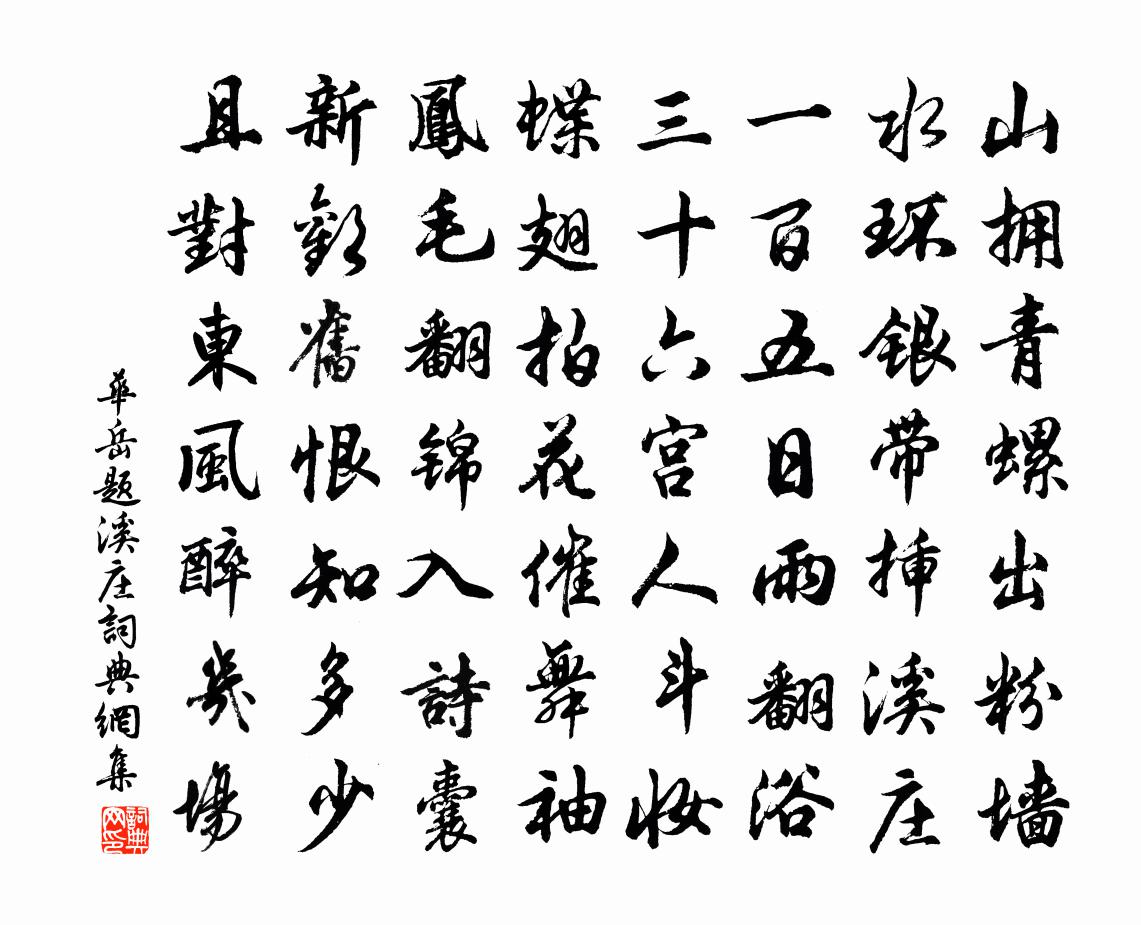 山拥青螺出粉墙
水环银带插溪庄
一百五日雨翻浴
三十六宫人斗妆
蝶翅拍花催舞袖
鳳毛翻锦入詩囊
新歡舊恨知多少
且對東風醉幾場
華岳题溪庄詞典網集
詞典网印